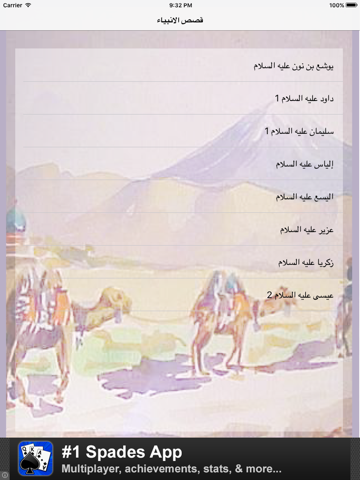 Carrier 9:32 PM 100%
قصص الانبياء
يوشع بن نون عليه السلام
داود عليه السلام 1
سليمان عليه السلام 1
إلياس عليه السلام
اليسع عليه السلام
عزير عليه السلام
زكريا عليه السلام
عيسى عليه السلام 2
#1 Spades App
Multiplayer, achievements, stats, & more...